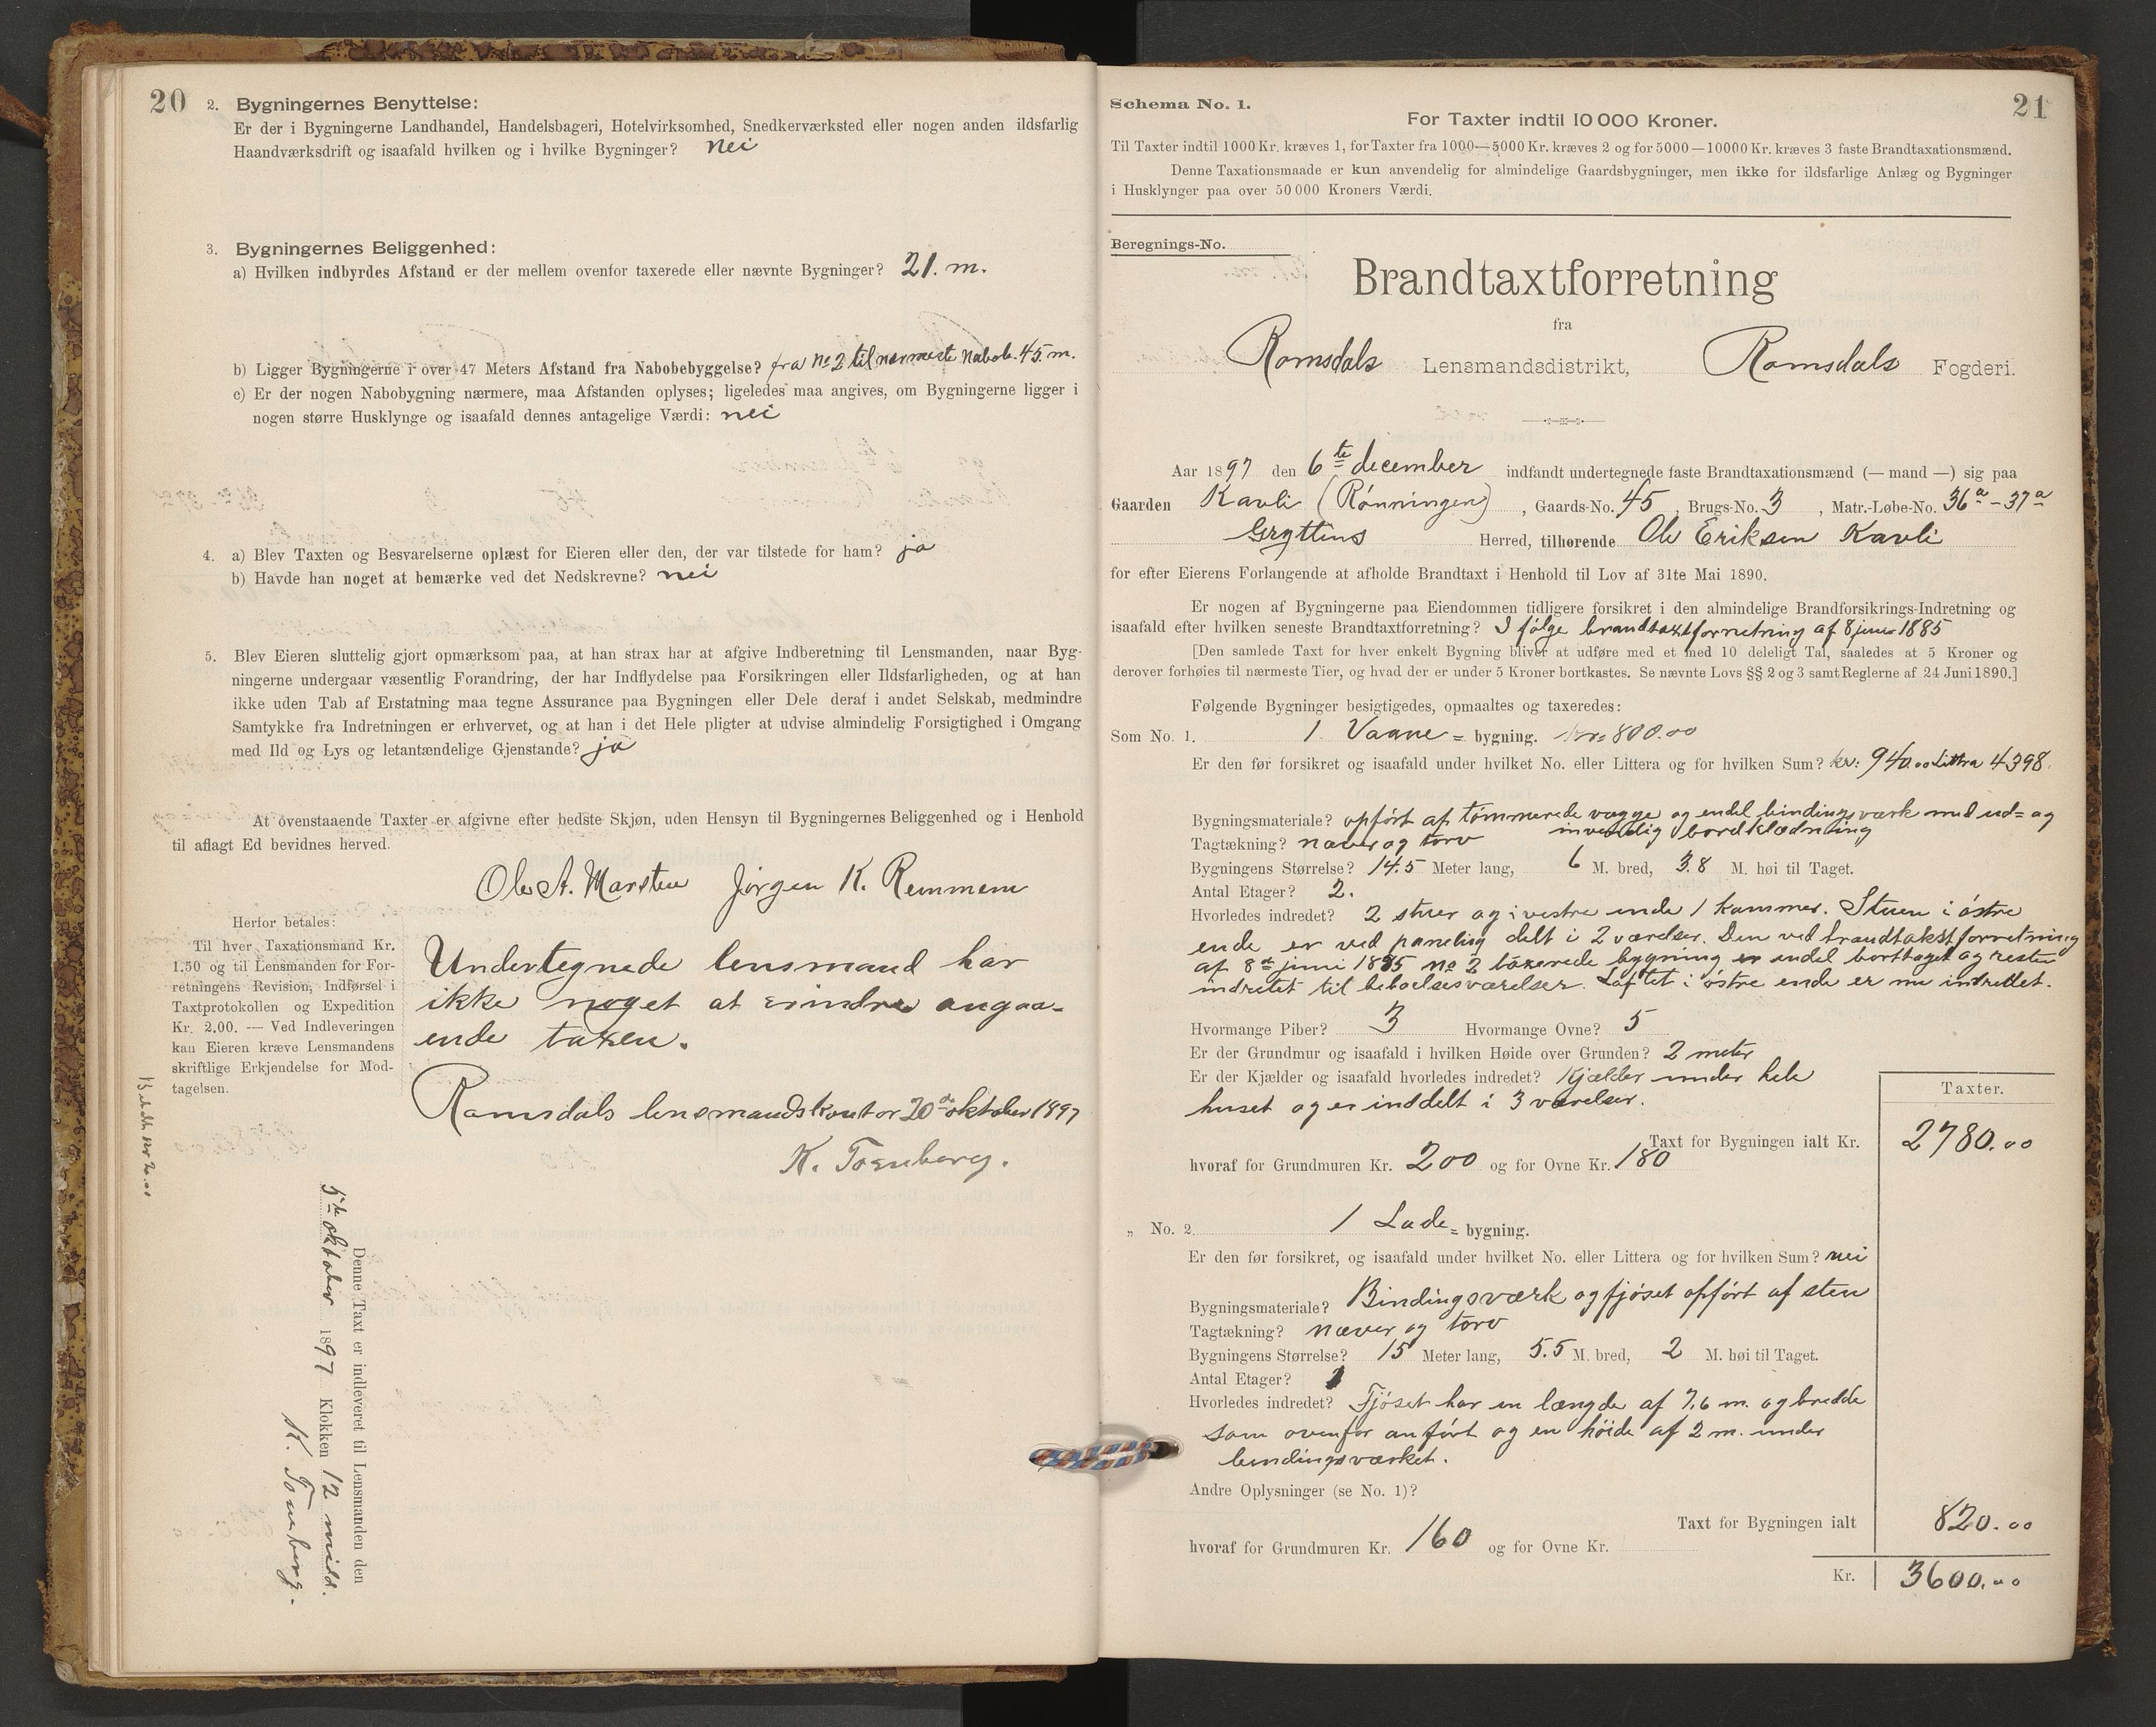 20
2. Bygningernes Benyttelse:
Er der i Bygningerne Landhandel, Handelsbageri, Hotelvirksomhed, Snedkerværksted eller nogen anden ildsfarlig
Haandværksdrift og isaafald hvilken og i hvilke Bygninger? nei
3. Bygningernes Beliggenhed:
a) Hvilken indbyrdes Afstand er der mellem ovenfor taxerede eller nævnte Bygninger? 21. m.
b) Ligger Bygningerne i over 47 Meters Afstand fra Nabobebyggelse? fra No 2 til nærmeste Nabob. 45 m.
c) Er der nogen Nabobygning nærmere, maa Afstanden oplyses; ligeledes maa angives, om Bygningerne ligger i
nogen større Husklynge og isaafald dennes antagelige Værdi: nei
4. a) Blev Taxten og Besvarelserne oplæst for Eieren eller den, der var tilstede for ham? ja
b) Havde han noget at bemærke ved det Nedskrevne? nei
5. Blev Eieren sluttelig gjort opmærksom paa, at han strax har at afgive Indberetning til Lensmanden, naar Byg-
ningerne undergaar væsentlig Forandring, der har Indflydelse paa Forsikringen eller Ildsfarligheden, og at han
ikke uden Tab af Erstatning maa tegne Assurance paa Bygningen eller Dele deraf i andet Selskab, medmindre
Samtykke fra Indretningen er erhvervet, og at han i det Hele pligter at udvise almindelig Forsigtighed i Omgang
med Ild og Lys og letantændelige Gjenstande? ja
At ovenstaaende Taxter er afgivne efter bedste Skjøn, uden Hensyn til Bygningernes Beliggenhed og i Henhold
til aflagt Ed bevidnes herved.
Ole A. Marsten Jørgen K. Remmem
Herfor betales:
Til hver Taxationsmand Kr.
1.50 og til Lensmanden for For-
retningens Revision, Indførsel i
Taxtprotokollen og Expedition
Kr. 2.00. — Ved Indleveringen
kan Eieren kræve Lensmandens
skriftlige Erkjendelse for Mod-
tagelsen.
Undertegnede lensmand har
ikke noget at erindre angaa-
ende taxen.
Romsdals lensmandskontor 20de oktober 1897
K. Tosneberg.
Betalt Kr 2.00
Denne Taxt er indleveret til Lensmanden den
5te oktober 1897 Klokken 12 midd.
K. Tosneberg.
21
Schema No. 1.
For Taxter indtil 10 000 Kroner.
Til Taxter indtil 1000 Kr. kræves 1, for Taxter fra 1000—5000 Kr. kræves 2 og for 5000—10000 Kr. kræves 3 faste Brandtaxationsmænd.
Denne Taxationsmaade er kun anvendelig for almindelige Gaardsbygninger, men ikke for ildsfarlige Anlæg og Bygninger
i Husklynger paa over 50 000 Kroners Værdi.
Beregnings-No.
Brandtaxtforretning
fra
Romsdals Lensmandsdistrikt, Romsdals Fogderi.
Aar 1897 den 6te december indfandt undertegnede faste Brandtaxationsmænd (— mand —) sig paa
Gaarden Kavli (Rønningen), Gaards-No. 45, Brugs-No. 3, Matr.-Løbe-No. 36a - 37a
Gryttens Herred, tilhørende Ole Eriksen Kavli
for efter Eierens Forlangende at afholde Brandtaxt i Henhold til Lov af 31te Mai 1890.
Er nogen af Bygningerne paa Eiendommen tidligere forsikret i den almindelige Brandforsikrings-Indretning og
isaafald efter hvilken seneste Brandtaxtforretning? I følge brandtaxtforretning af 8 juni 1885
[Den samlede Taxt for hver enkelt Bygning bliver at udføre med et med 10 deleligt Tal, saaledes at 5 Kroner og
derover forhøies til nærmeste Tier, og hvad der er under 5 Kroner bortkastes. Se nævnte Lovs §§ 2 og 3 samt Reglerne af 24 Juni 1890.]
Følgende Bygninger besigtigedes, opmaaltes og taxeredes:
Som No. 1. 1 Vaane = bygning. Kr: 800.00
Er den før forsikret og isaafald under hvilket No. eller Littera og for hvilken Sum? kr: 940.00 Littra 4398.
Bygningsmateriale? opført af tømmerede vægge og endel bindingsværk med ud= og
indvendig bordklædning
Tagtækning? næver og torv
Bygningens Størrelse? 14.5 Meter lang, 6 M. bred, 3.8 M. høi til Taget.
Antal Etager? 2.
Hvorledes indredet? 2 stuer og i vestre ende 1 kammer. Stuen i østre
ende er ved paneling delt i 2 værelser. Den ved brandtakstforretning
af 8de juni 1885 No 2 taxerede bygning er endel borttaget og resten
indretet til beboelsesværelser. Loftet i østre ende er nu indredet.
Hvormange Piber? 3 Hvormange Ovne? 5
Er der Grundmur og isaafald i hvilken Høide over Grunden? 2 meter
Er der Kjælder og isaafald hvorledes indredet? Kjælder under hele
huset og er inddelt i 3 værelser.
Taxter.
Taxt for Bygningen ialt Kr. 2780.00
hvoraf for Grundmuren Kr. 200 og for Ovne Kr. 180
„ No. 2. 1 Lade = bygning.
Er den før forsikret, og isaafald under hvilket No. eller Littera og for hvilken Sum? nei
Bygningsmateriale? Bindingsværk og fjøset opført af sten
Tagtækning? næver og torv
Bygningens Størrelse? 15 Meter lang, 5.5 M. bred, 2 M. høi til Taget.
Antal Etager? 1
Hvorledes indredet? Fjøset har en længde af 7.6 m. og bredde
som ovenfor anført og en høide af 2 m. under
bindingsværket.
Andre Oplysninger (se No. 1)?
Taxt for Bygningen ialt 820.00
hvoraf for Grundmuren Kr. 160 og for Ovne Kr.
Kr. 3600.00